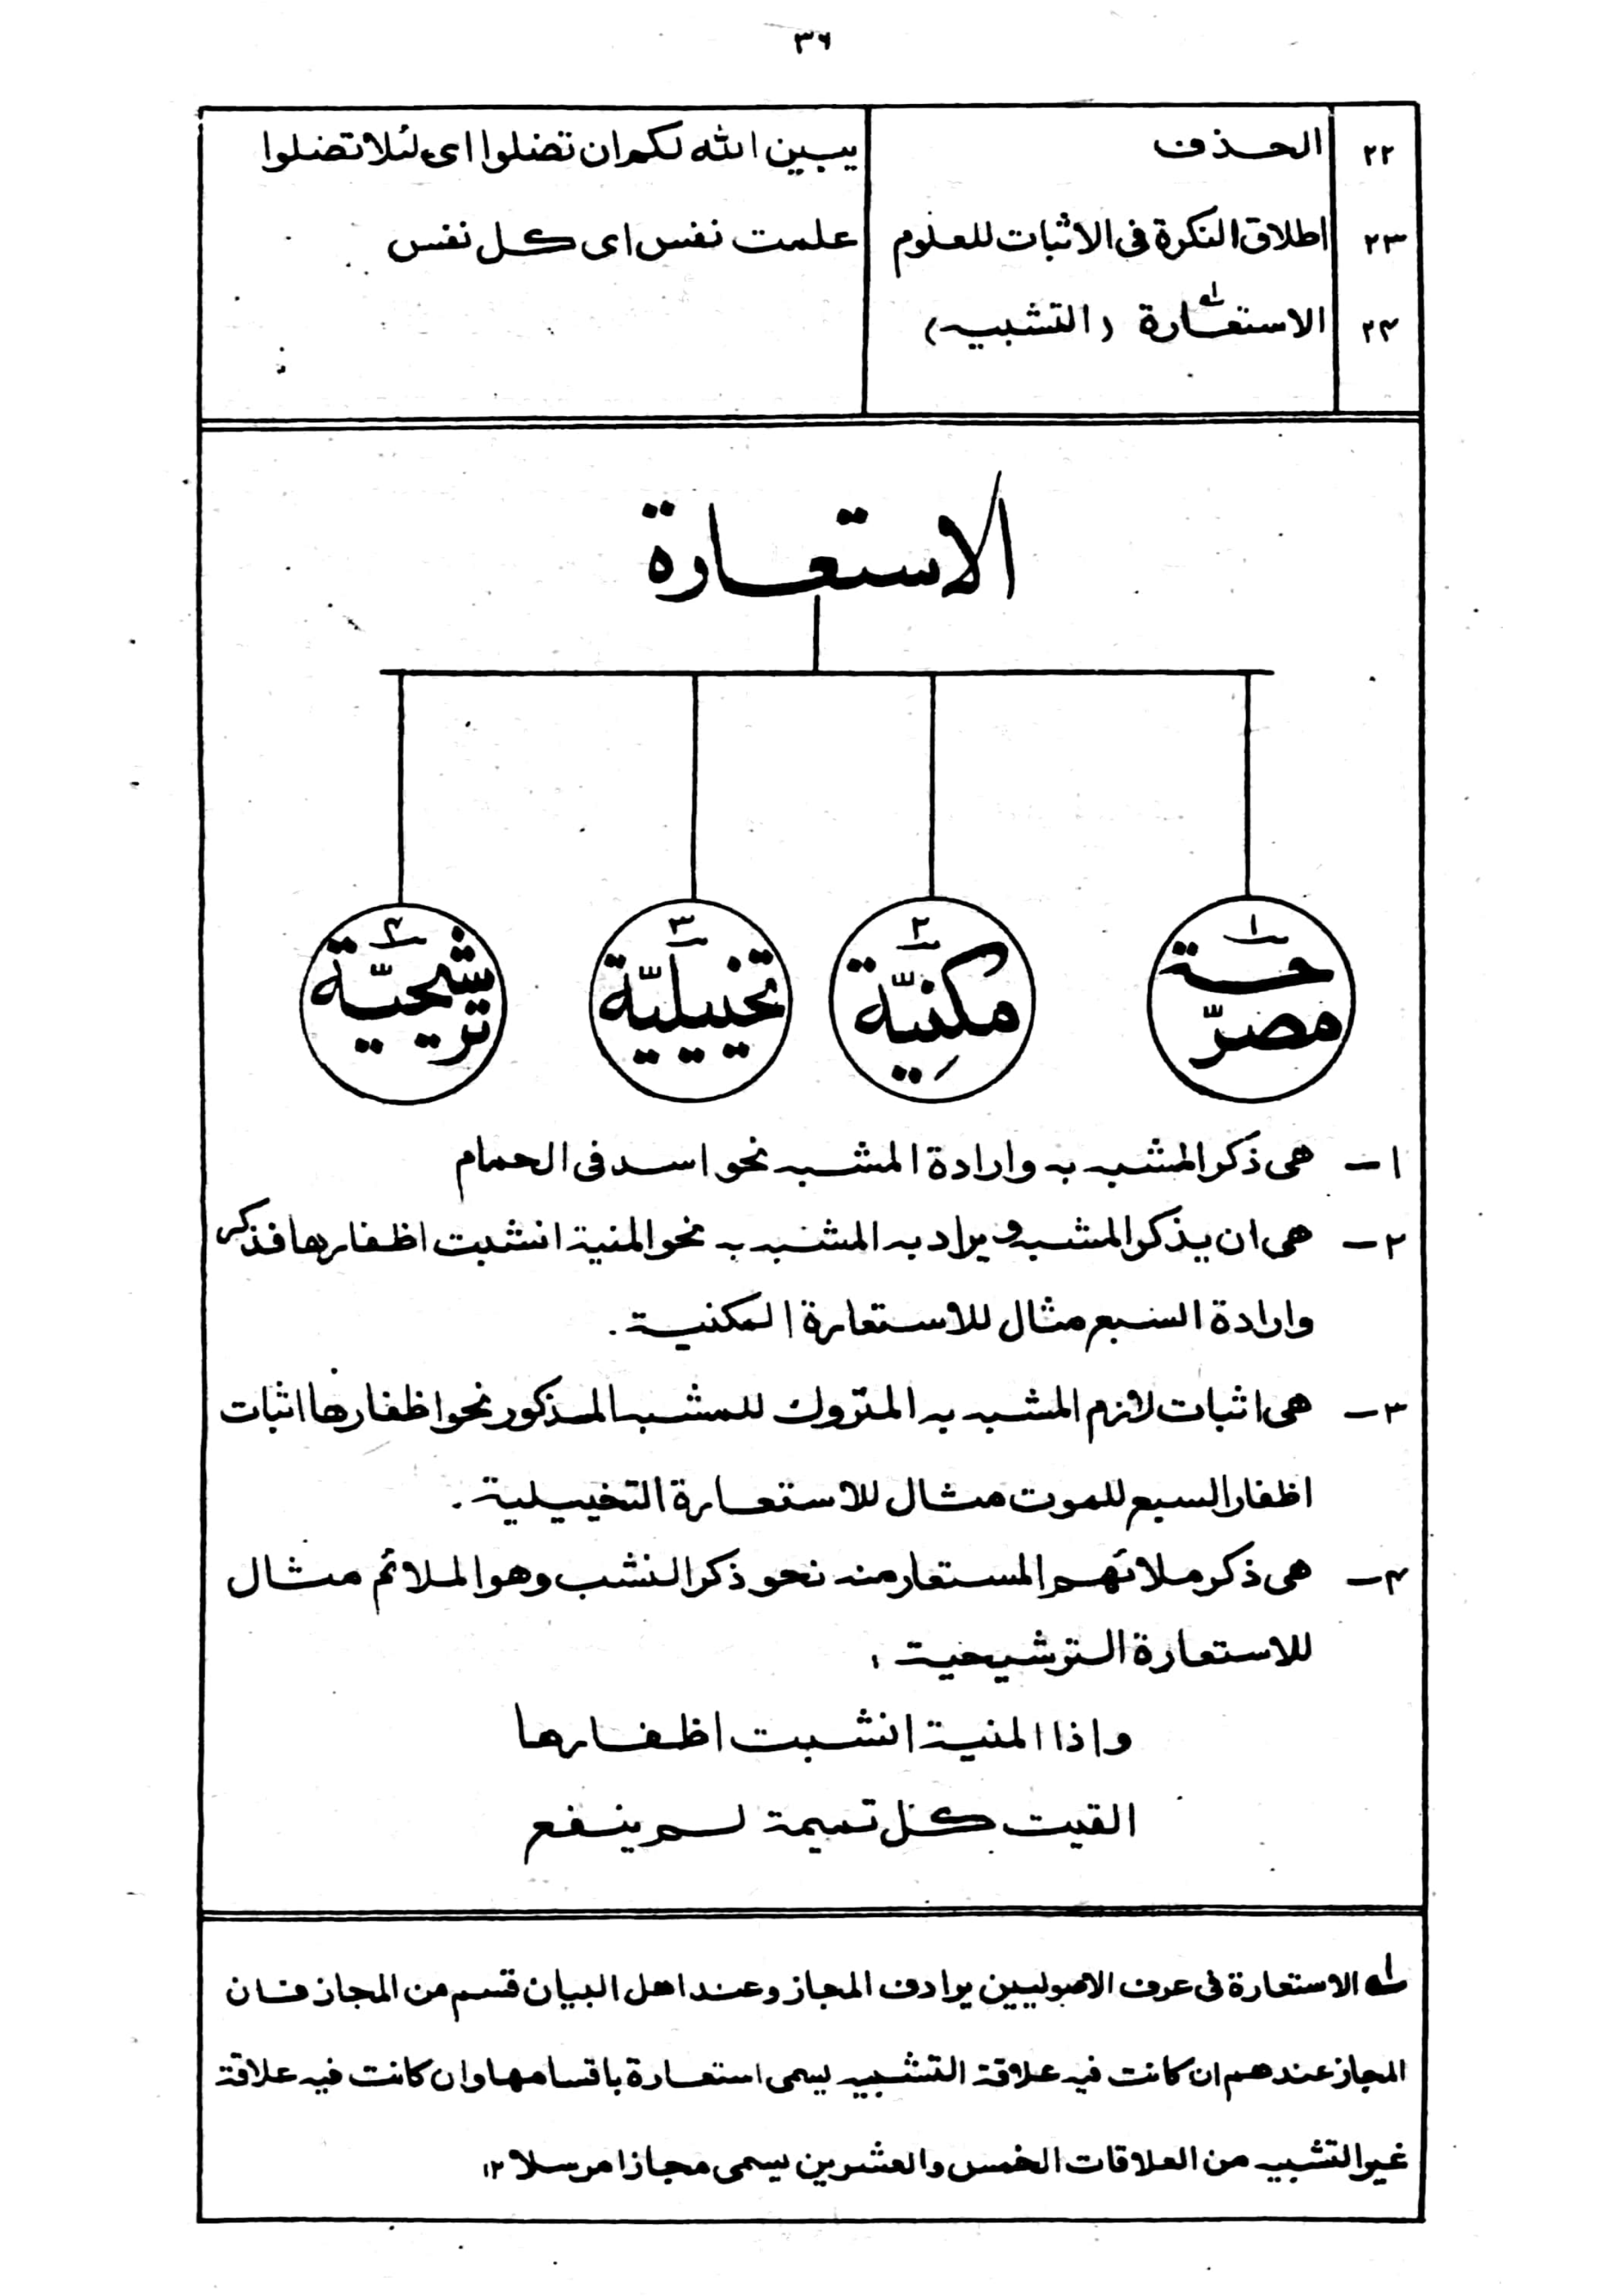 ٣٦
٢٢ الحذف يبين الله لكم ان تضلوا اى لئلا تضلوا
٢٣ اطلاق النكرة فى الاثبات للعلوم علمت نفس اى كل نفس
٢٤ الاستعارة (التشبيه)
الاستعارة
١ مصرّحة ٢ مكنيّة ٣ تخييليّة ٤ ترشيحيّة
١ـ هى ذكر المشبه به وارادة المشبه نحو اسد فى الحمام
٢ـ هى ان يذكر المشبه ويراد به المشبه به نحو المنية انشبت اظفارها فذكر
وارادة السبع مثال للاستعارة المكنية .
٣ـ هى اثبات لازم المشبه به المتروك للمشبه المذكور نحو اظفارها اثبات
اظفار السبع للموت مثال للاستعارة التخييلية .
٤ـ هى ذكر ملائهم المستعار منه نحو ذكر النشب وهو الملائم مثال
للاستعارة الترشيحية ،
واذا المنية انشبت اظفارها
القيت كل تميمة لم ينفع
له الاستعارة فى عرف الاصوليين يرادف المجاز وعند اهل البيان قسم من المجاز فان
المجاز عندهم ان كانت فيه علاقة التشبيه يسمى استعارة باقسامها وان كانت فيه علاقة
غير التشبيه من العلاقات الخمس والعشرين يسمى مجازا مرسلا ١٢